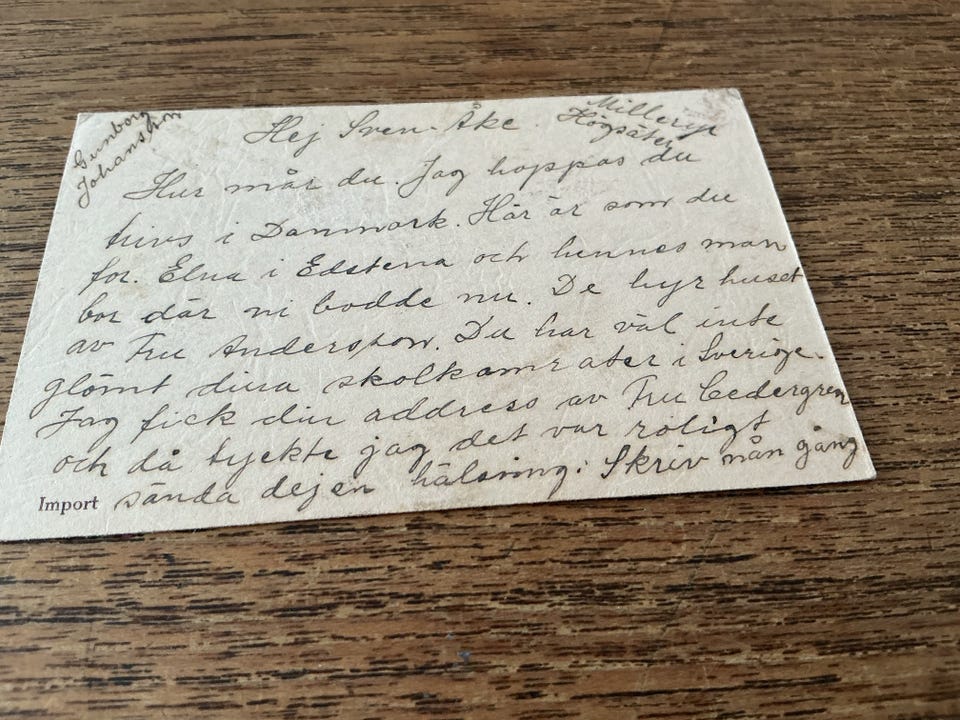 Gunborg
Johansson
Hej Sven-Åke.
Högsäter
Hur mår du. Jag hoppas du
trivs i Danmark. Här är som du
for. Elna i Edstena och hennes man
bor där vi bodde nu. De hyr huset
av Fru Andersson. Du har väl inte
glömt dina skolkamrater i Sverige.
Jag fick din address av Fru Cedergren
och då tyckte jag det var roligt
sända dej en hälsning. Skriv nån gång
Import